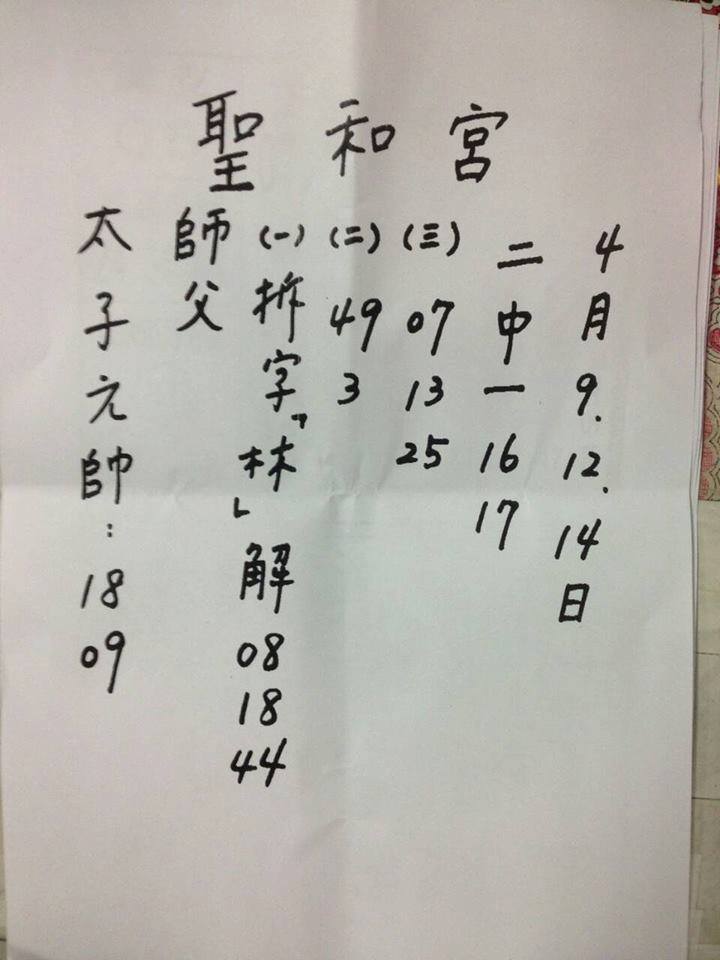 聖和宮
4月9.12.14日
二中一 16 17
(三) 07 13 25
(二) 49 3
(一) 拆字『林』解 08 18 44
師父
太子元帥：18 09